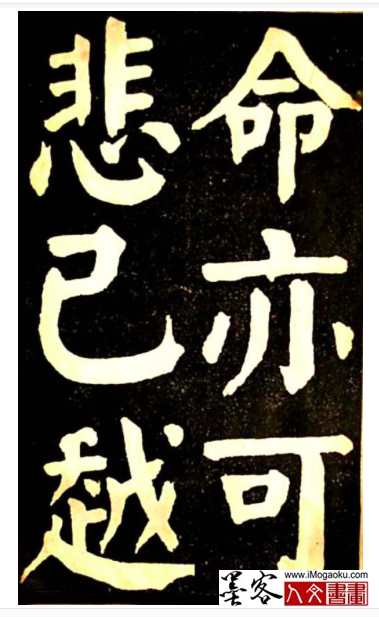 命亦可
悲已越
墨客
www.iMogaoku.com
人文書畫